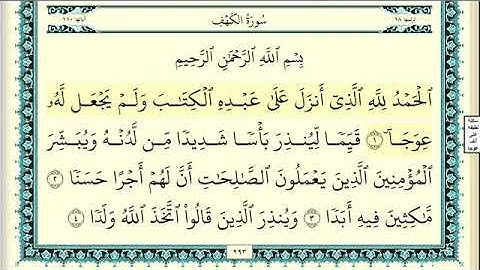 ترتيبها ١٨
سُورَةُ الكَهْفِ
آياتها ١١٠
بِسْمِ اللَّهِ الرَّحْمَٰنِ الرَّحِيمِ
الْحَمْدُ لِلَّهِ الَّذِي أَنزَلَ عَلَىٰ عَبْدِهِ الْكِتَابَ وَلَمْ يَجْعَل لَّهُ
عِوَجًا ۜ ١ قَيِّمًا لِّيُنذِرَ بَأْسًا شَدِيدًا مِّن لَّدُنْهُ وَيُبَشِّرَ
الْمُؤْمِنِينَ الَّذِينَ يَعْمَلُونَ الصَّالِحَاتِ أَنَّ لَهُمْ أَجْرًا حَسَنًا ٢
مَّاكِثِينَ فِيهِ أَبَدًا ٣ وَيُنذِرَ الَّذِينَ قَالُوا اتَّخَذَ اللَّهُ وَلَدًا ٤
٢٩٣